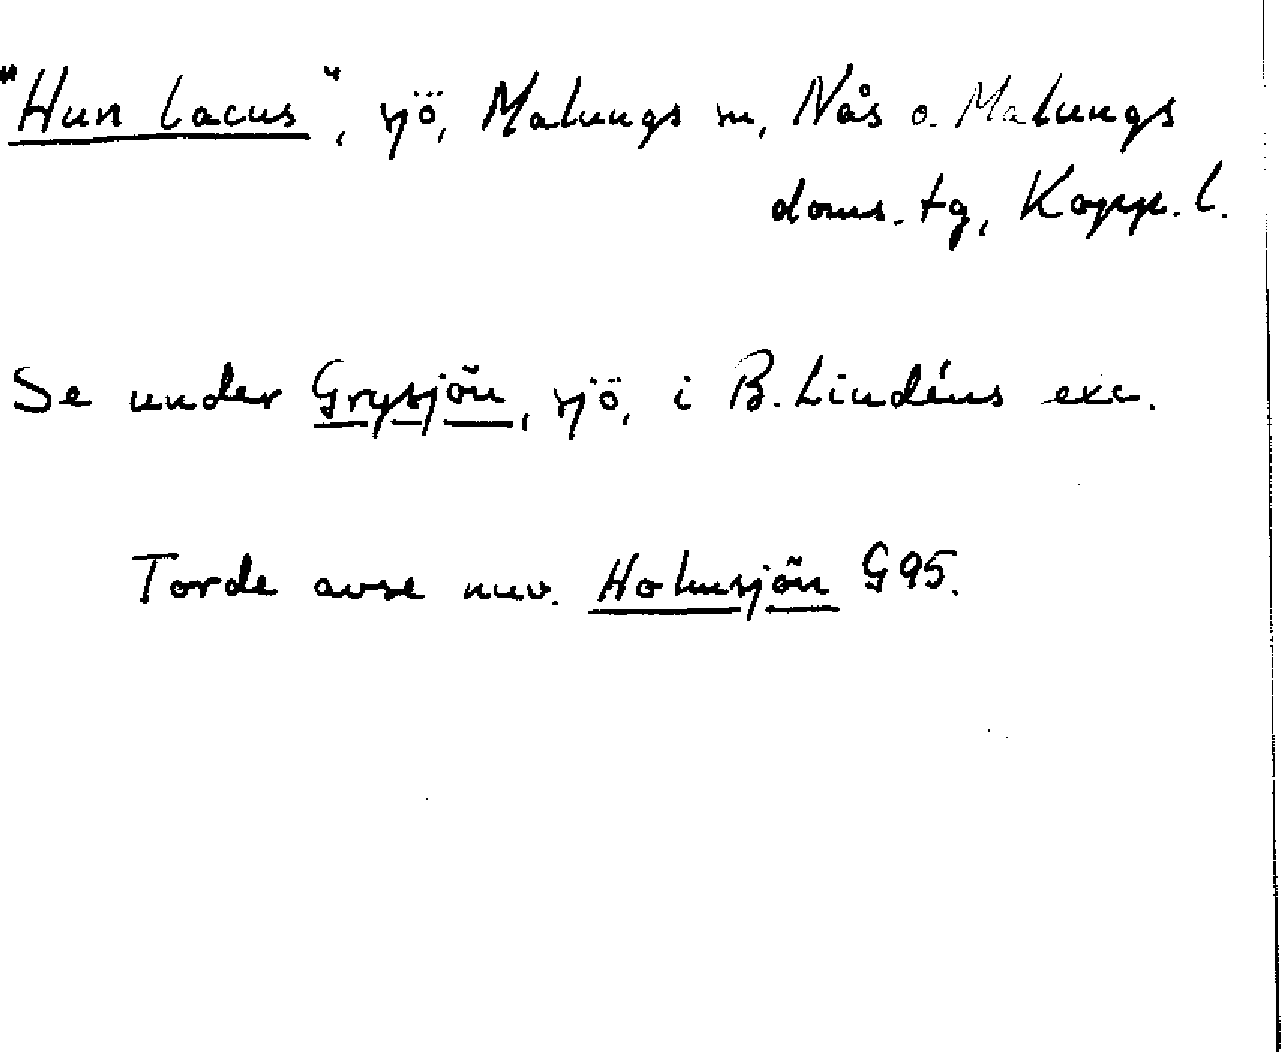 "Hun lacus", sjö, Malungs sn, Nås o. Malungs
doms. tg, Kopp. l.
Se under Grysjön, sjö, i B. Lindéns exc.
Torde avse nuv. Holmsjön G95.